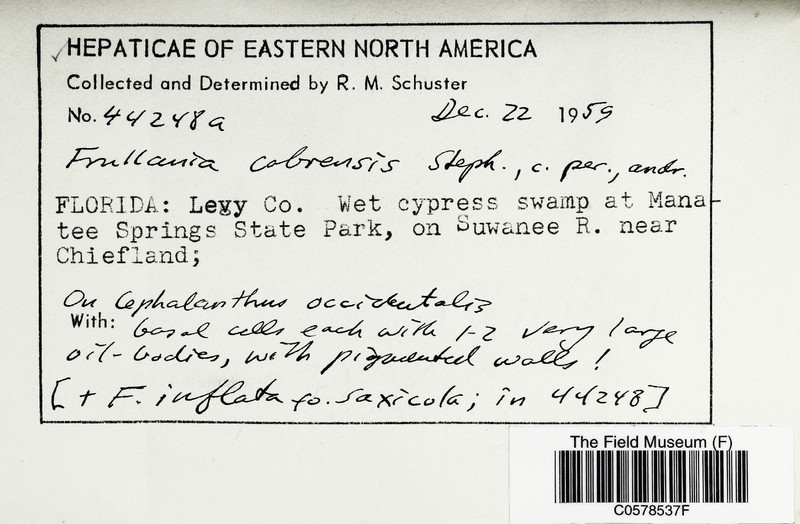 ✓HEPATICAE OF EASTERN NORTH AMERICA
Collected and Determined by R. M. Schuster
No. 44248a Dec. 22 1959
Frullania cobrensis Steph., c. per., andr.
FLORIDA: Levy Co. Wet cypress swamp at Mana-
tee Springs State Park, on Suwanee R. near
Chiefland;
On Cephalanthus occidentalis
With: basal cells each with 1-2 very large
oil-bodies, with pigmented walls!
[+ F. inflata fo. saxicola; in 44248]
The Field Museum (F)
C0578537F